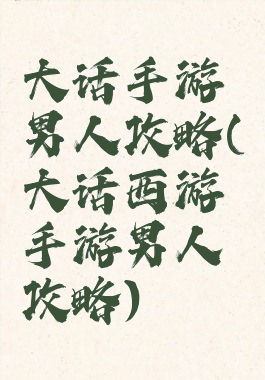 大话手游
男人攻略(
大话西游
手游男人
攻略)